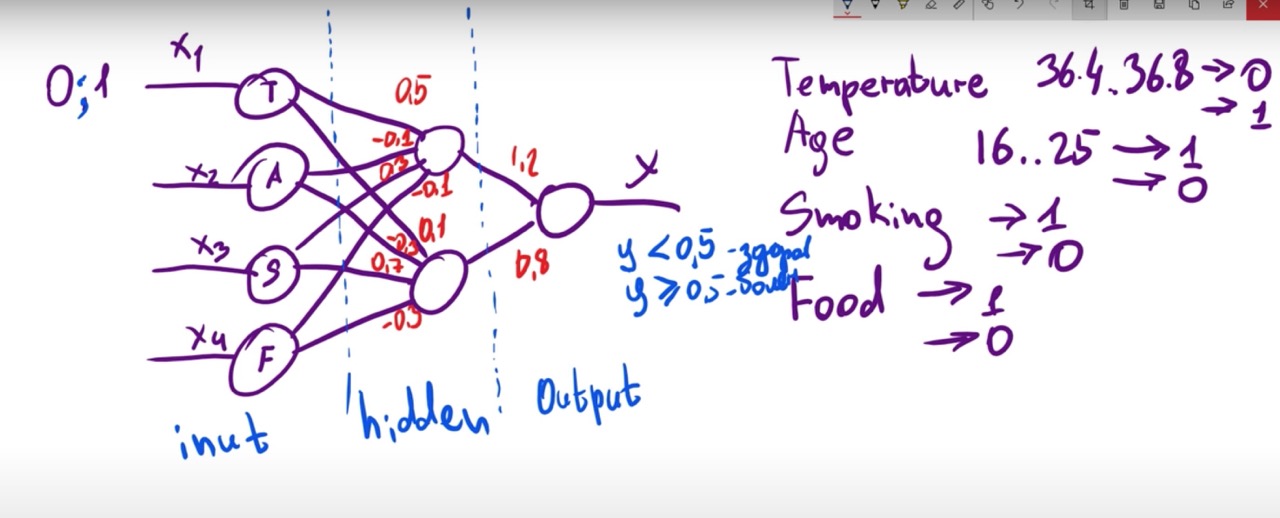 0;1
x1
T
x2
A
x3
S
x4
F
0,5
-0,1
0,3
-0,1
0,1
0,7
-0,3
1,2
0,8
y
y < 0,5 - здоров
y ≥ 0,5 - болен
inut
hidden
Output
Temperature 36.4..36.8 → 0
→ 1
Age 16..25 → 1
→ 0
Smoking → 1
→ 0
Food → 1
→ 0